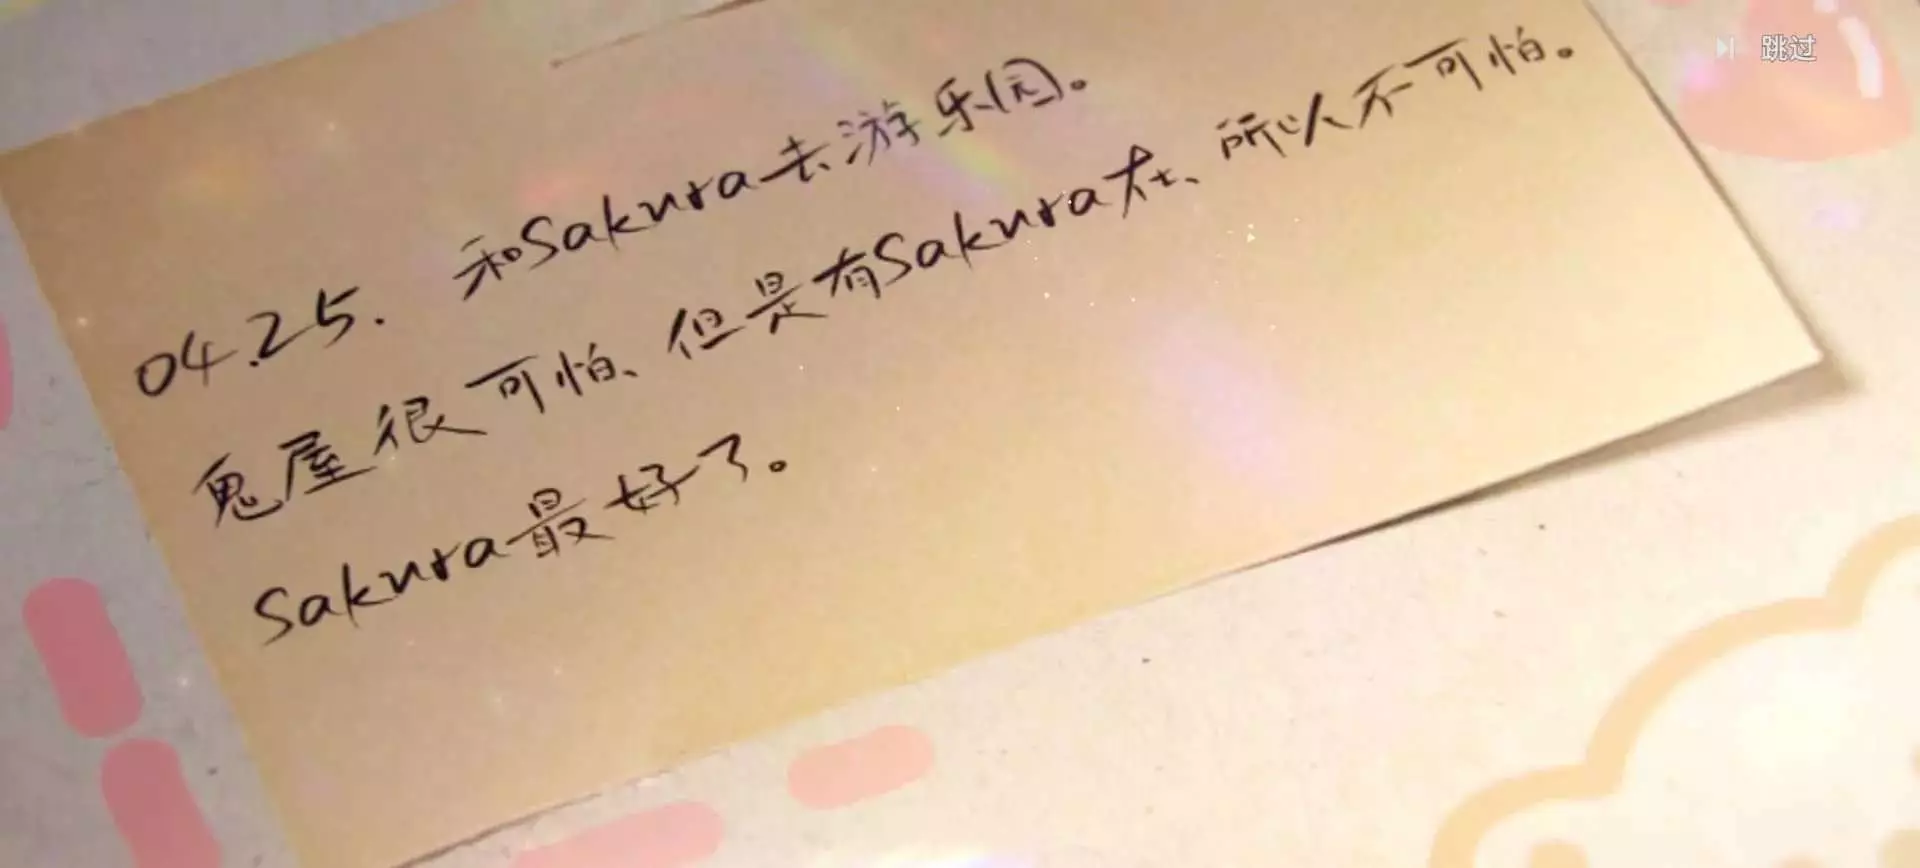 跳过
04.25. 和Sakura去游乐园。
鬼屋很可怕、但是有Sakura在、所以不可怕。
Sakura最好了。